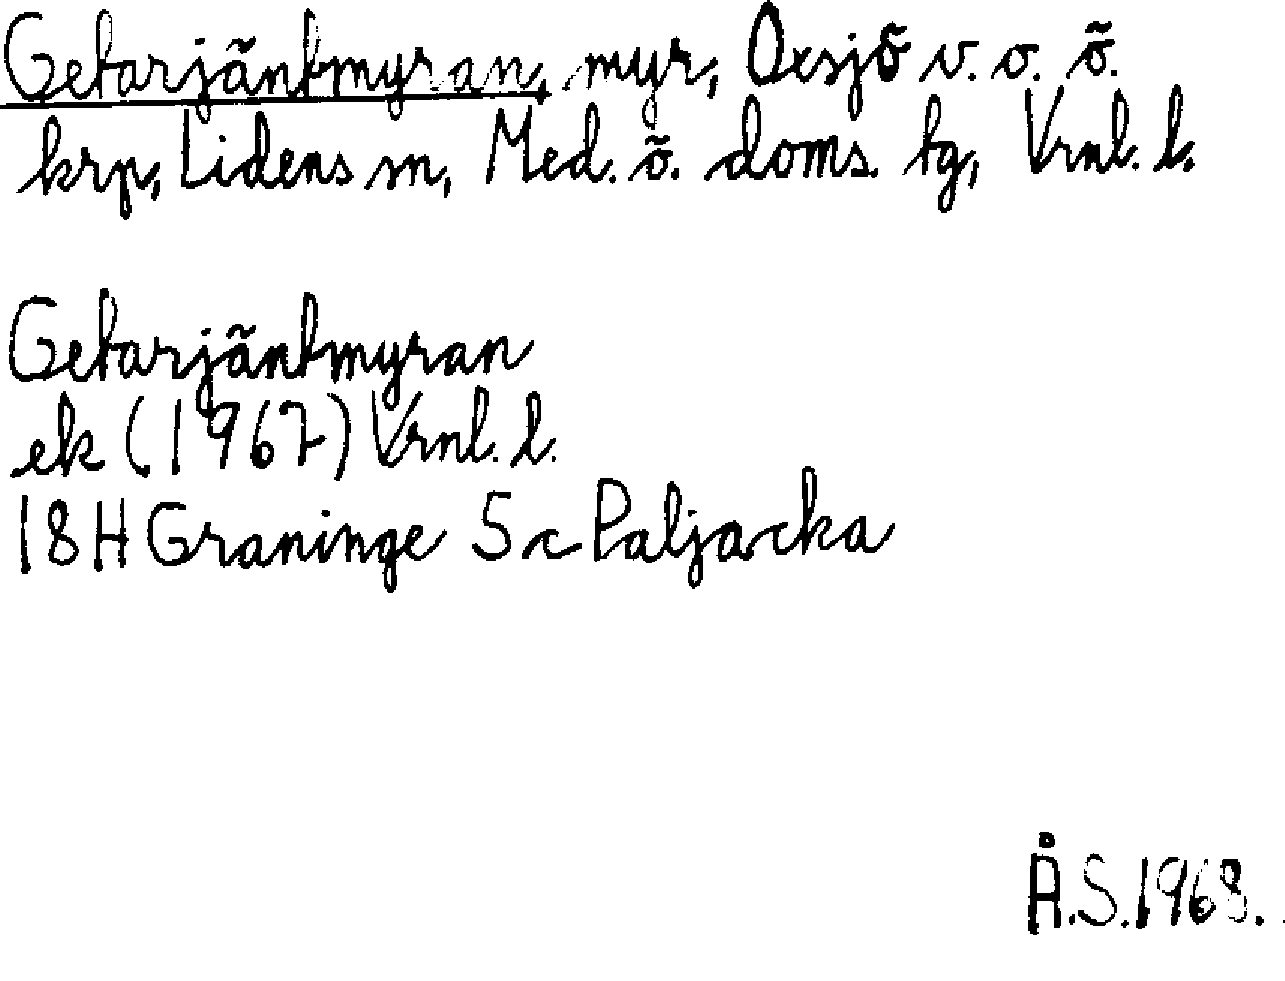 Getarjäntmyran, myr, Oxsjö v. o. ö.
krp, Lidens sn, Med. ö. doms. tg, Vrnl. l.
Getarjäntmyran
ek (1967) Vrnl. l.
18H Graninge 5c Paljacka
Å.S.1968.